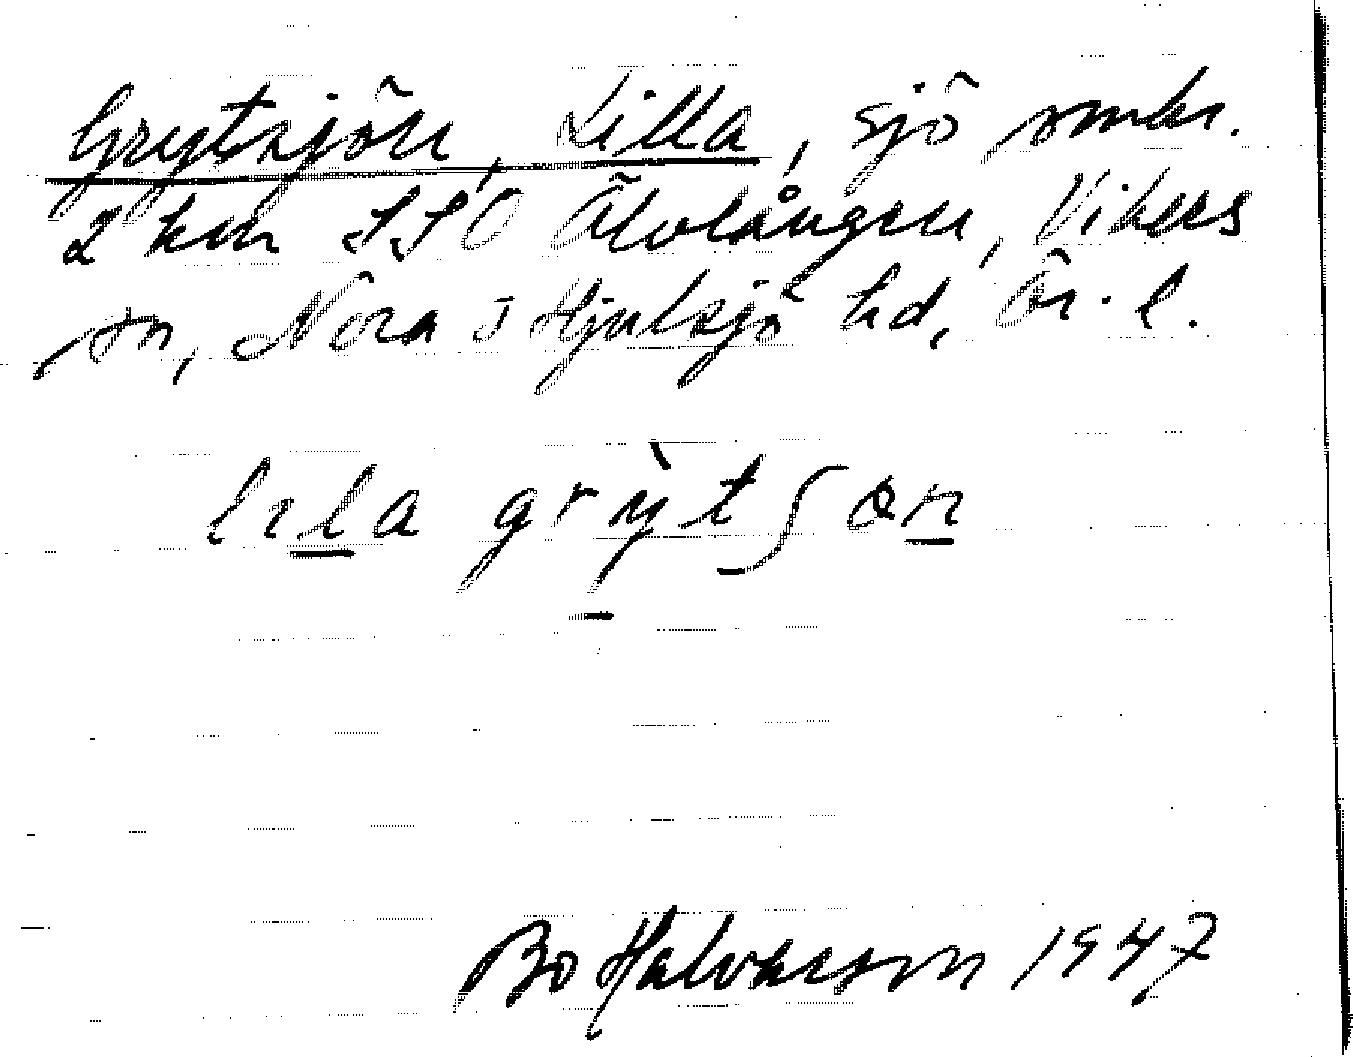 Grytsjön, Lilla, sjö omkr.
2 km SSO Älvlången, Vikers
sn, Nora o Hjulsjö hd, Ör. l.
lɪla grỳtʃøn
Bo Halvarson 1947